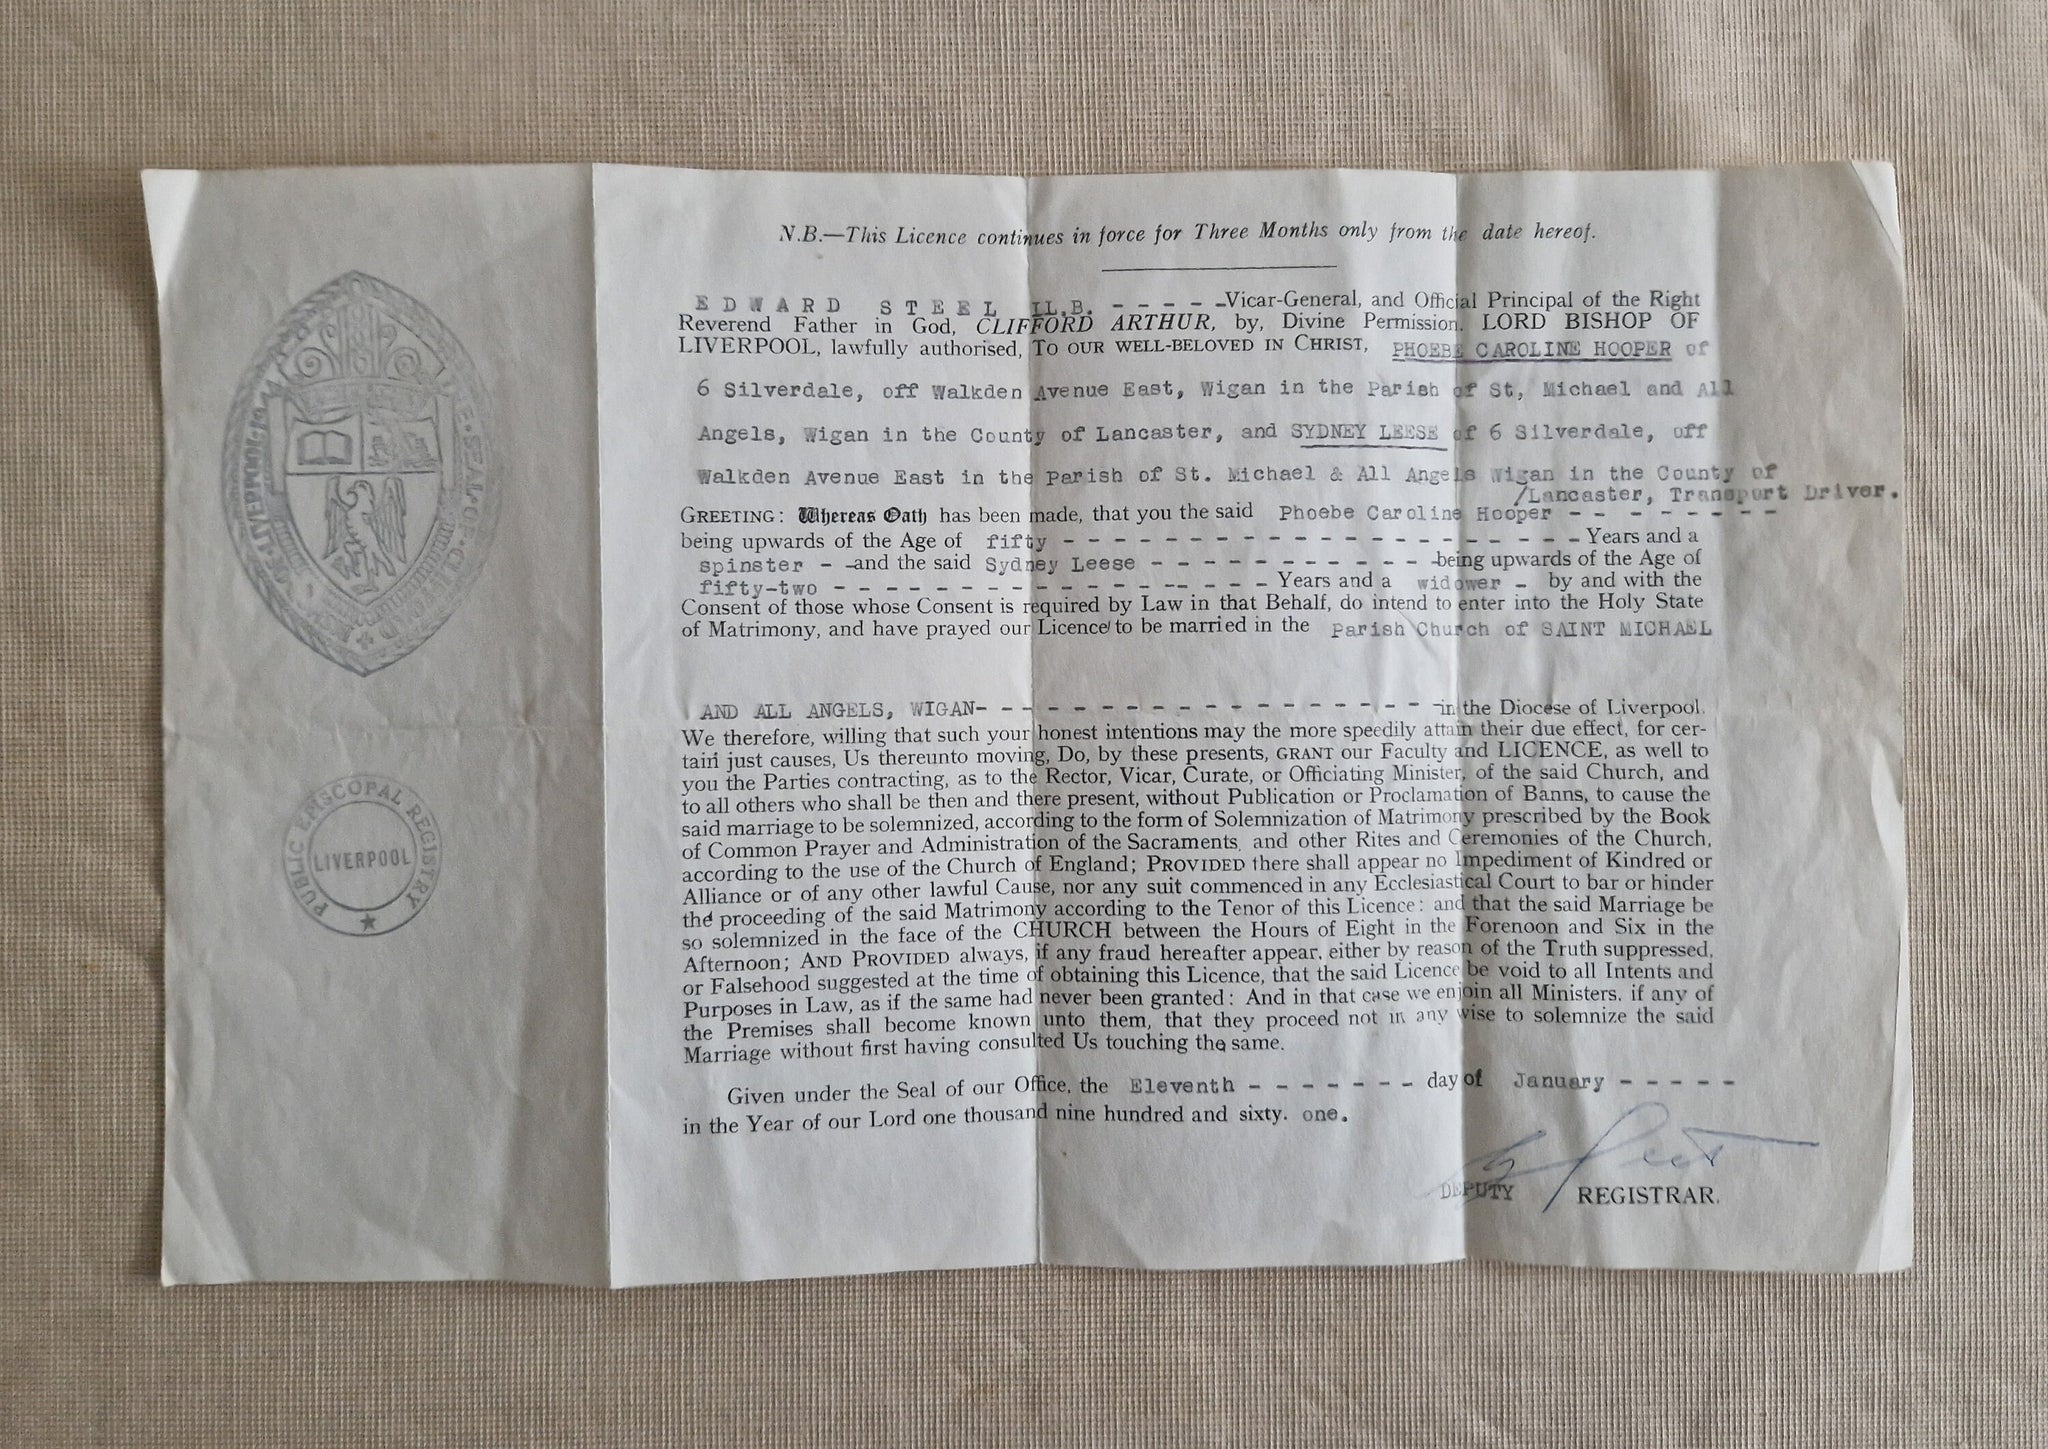 N.B.—This Licence continues in force for Three Months only from the date hereof.
EDWARD STEEL LL.B. - - - - - Vicar-General, and Official Principal of the Right
Reverend Father in God, CLIFFORD ARTHUR, by, Divine Permission, LORD BISHOP OF
LIVERPOOL, lawfully authorised, TO OUR WELL-BELOVED IN CHRIST, PHOEBE CAROLINE HOOPER of
6 Silverdale, off Walkden Avenue East, Wigan in the Parish of St, Michael and All
Angels, Wigan in the County of Lancaster, and SYDNEY LEESE of 6 Silverdale, off
Walkden Avenue East in the Parish of St. Michael & All Angels Wigan in the County of
/Lancaster, Transport Driver.
GREETING: Whereas Oath has been made, that you the said Phoebe Caroline Hooper - - - - - - - -
being upwards of the Age of fifty - - - - - - - - - - - - - - - - - - - Years and a
spinster - - and the said Sydney Leese - - - - - - - - - - - being upwards of the Age of
fifty-two - - - - - - - - - - - - - - - - Years and a widower - by and with the
Consent of those whose Consent is required by Law in that Behalf, do intend to enter into the Holy State
of Matrimony, and have prayed our Licence to be married in the Parish Church of SAINT MICHAEL
AND ALL ANGELS, WIGAN- - - - - - - - - - - - - - - - - - - in the Diocese of Liverpool.
We therefore, willing that such your honest intentions may the more speedily attain their due effect, for cer-
tain just causes, Us thereunto moving, Do, by these presents, GRANT our Faculty and LICENCE, as well to
you the Parties contracting, as to the Rector, Vicar, Curate, or Officiating Minister, of the said Church, and
to all others who shall be then and there present, without Publication or Proclamation of Banns, to cause the
said marriage to be solemnized, according to the form of Solemnization of Matrimony prescribed by the Book
of Common Prayer and Administration of the Sacraments, and other Rites and Ceremonies of the Church,
according to the use of the Church of England; PROVIDED there shall appear no Impediment of Kindred or
Alliance or of any other lawful Cause, nor any suit commenced in any Ecclesiastical Court to bar or hinder
the proceeding of the said Matrimony according to the Tenor of this Licence: and that the said Marriage be
so solemnized in the face of the CHURCH between the Hours of Eight in the Forenoon and Six in the
Afternoon; AND PROVIDED always, if any fraud hereafter appear, either by reason of the Truth suppressed,
or Falsehood suggested at the time of obtaining this Licence, that the said Licence be void to all Intents and
Purposes in Law, as if the same had never been granted: And in that case we enjoin all Ministers, if any of
the Premises shall become known unto them, that they proceed not in any wise to solemnize the said
Marriage without first having consulted Us touching the same.
Given under the Seal of our Office, the Eleventh - - - - - - - day of January - - - - -
in the Year of our Lord one thousand nine hundred and sixty. one.
DEPUTY REGISTRAR.
PUBLIC EPISCOPAL REGISTRY
LIVERPOOL